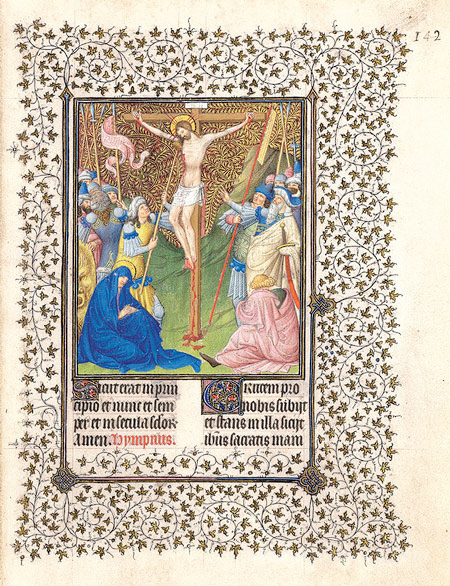 142
Sicut erat in prin
cipio et nunc et sem
per et in secula sclor.
Amen. Hympnus.
Crucem pro
nobis subijt
et stans in illa sicijt
ihūs sacratis mani